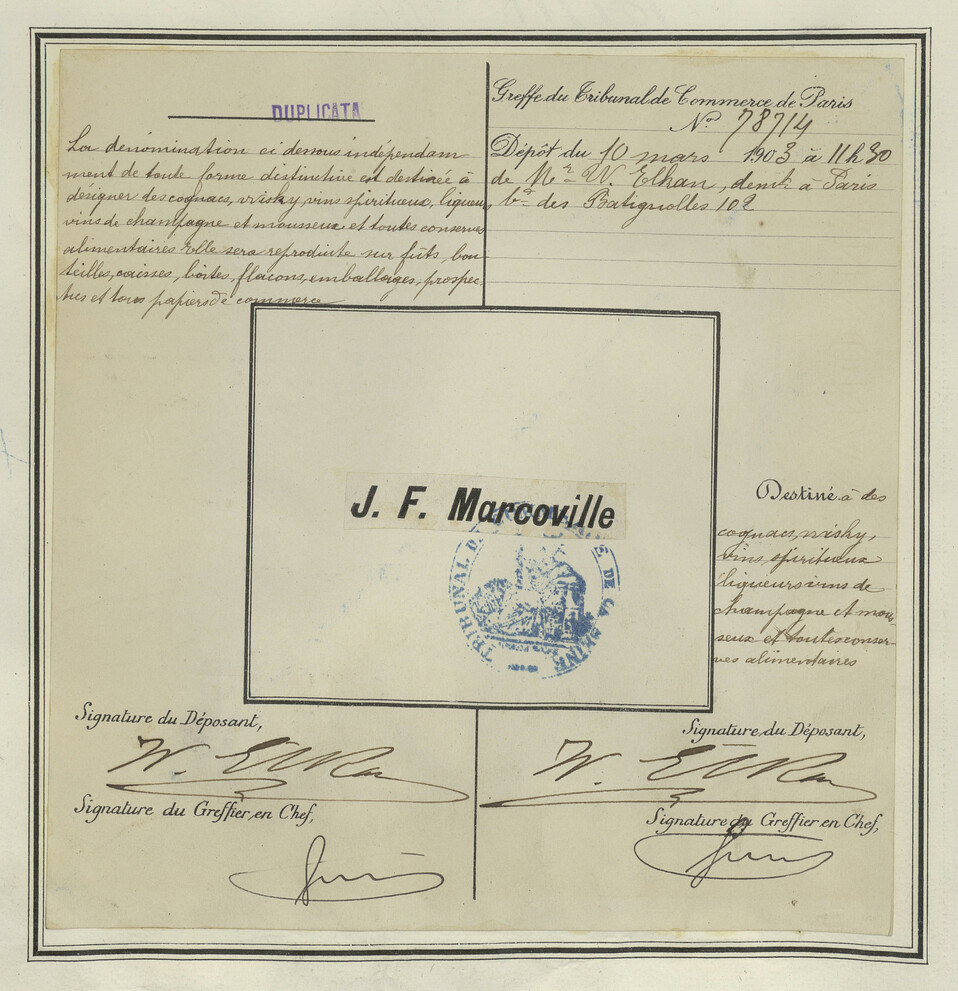 DUPLICATA
La dénomination ci dessous indépendam
ment de toute forme distinctive est destinée à
désigner des cognacs, wisky, vins spiritueux, liqueurs
vins de champagne et mousseux et toutes conserves
alimentaires Elle sera reproduite sur fûts, bou
teilles, caisses, boites, flacons, emballages, prospec
tus et tous papiers de commerce
Greffe du Tribunal de Commerce de Paris
No. 78714
Dépôt du 10 mars 1903 à 11 h 30
de Mr. W. Elkan, demt à Paris
bd des Batignolles 102
J. F. Marcoville
TRIBUNAL DE LA SEINE
Destiné à des
cognacs, wisky,
vins, spiritueux
liqueurs vins de
champagne et mous-
seux et toutes conser-
ves alimentaires
Signature du Déposant,
W. Elkan
Signature du Greffier en Chef,
Signature du Déposant,
W. Elkan
Signature du Greffier en Chef,